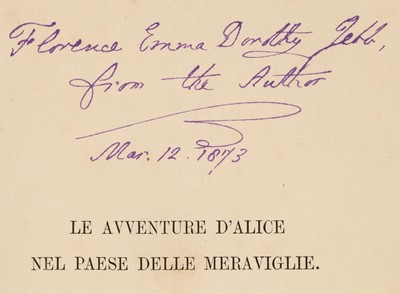 Florence Emma Dorothy Jebb,
from the Author
Mar. 12. 1873
LE AVVENTURE D'ALICE
NEL PAESE DELLE MERAVIGLIE.